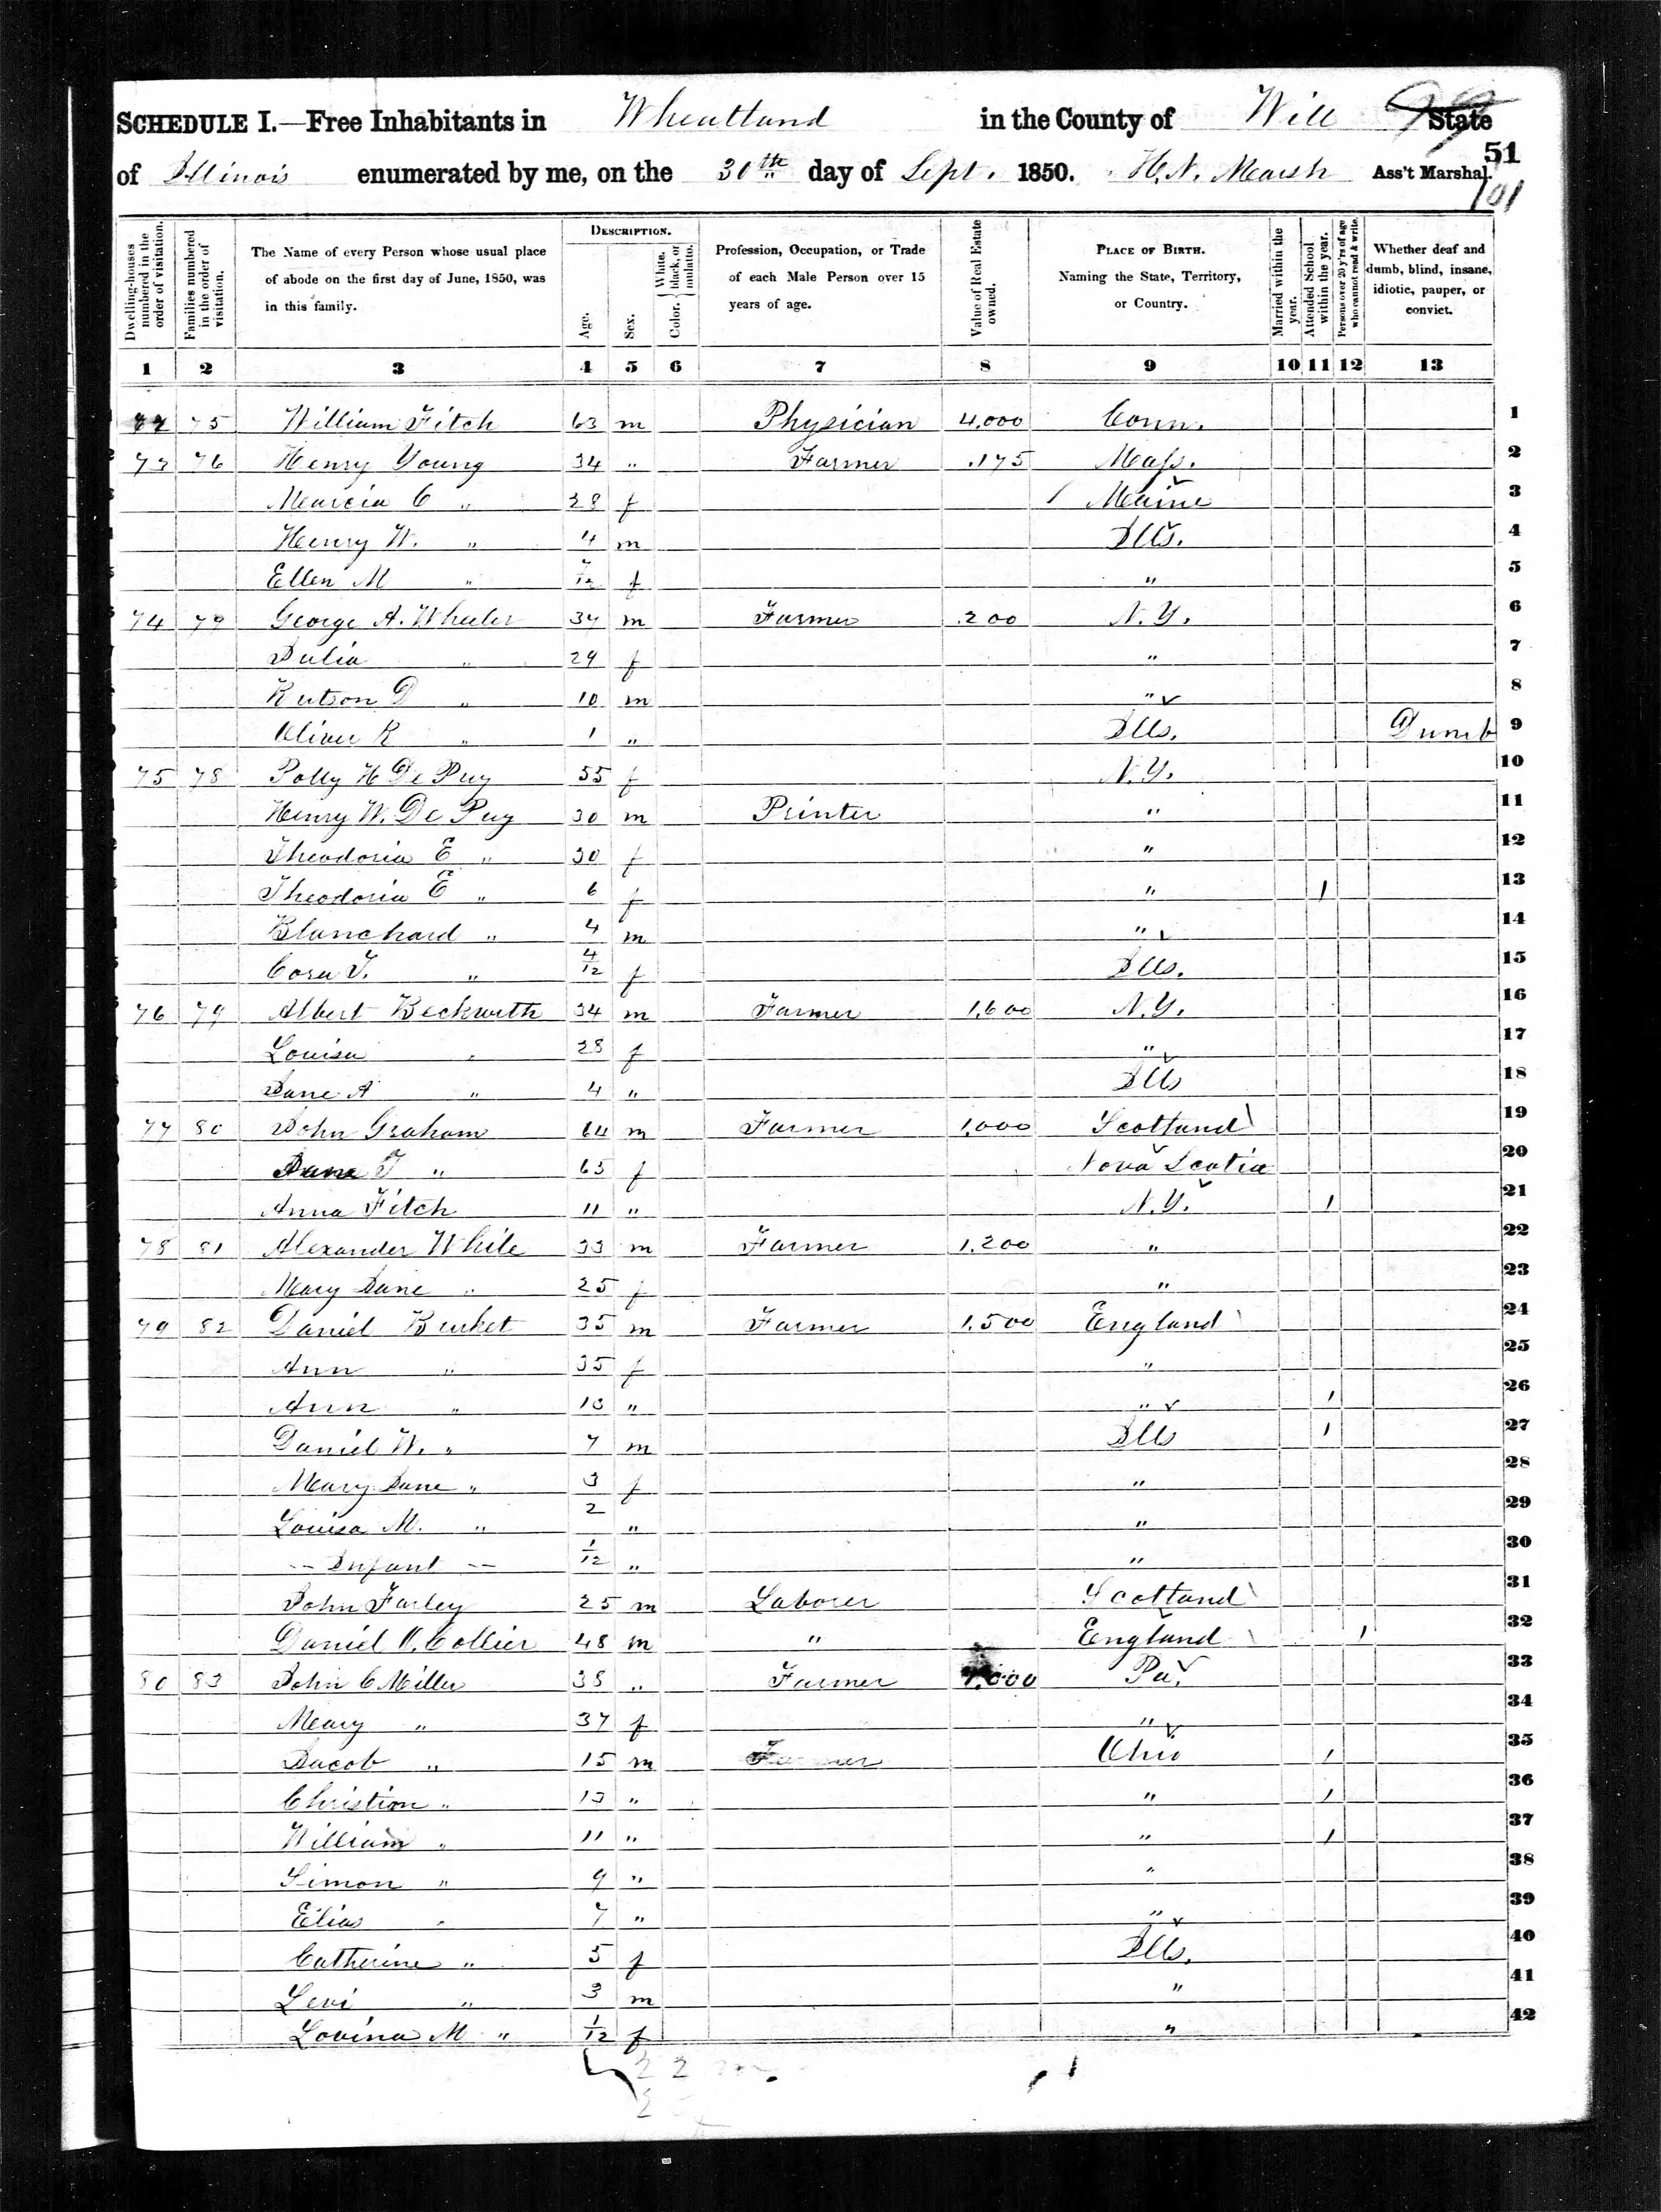 99
SCHEDULE I.—Free Inhabitants in Wheatland in the County of Will State
51
of Illinois enumerated by me, on the 30th day of Sept. 1850. H. N. Marsh Ass't Marshal.
101
Dwelling-houses numbered in the order of visitation.
Families numbered in the order of visitation.
The Name of every Person whose usual place of abode on the first day of June, 1850, was in this family.
DESCRIPTION.
Age.
Sex.
Color. { White, black, or mulatto.
Profession, Occupation, or Trade of each Male Person over 15 years of age.
Value of Real Estate owned.
PLACE OF BIRTH. Naming the State, Territory, or Country.
Married within the year.
Attended School within the year.
Persons over 20 y'rs of age who cannot read & write.
Whether deaf and dumb, blind, insane, idiotic, pauper, or convict.
1 2 3 4 5 6 7 8 9 10 11 12 13
75 William Fitch 63 m Physician 4,000 Conn. 1
73 76 Henry Young 34 " Farmer .175 Mass. 2
Marcia C " 28 f Maine 3
Henry W. " 4 m Ills. 4
Ellen M " /12 f " 5
74 George A. Wheeler 34 m Farmer .200 N.Y. 6
Julia " 29 f " 7
D " 10 m " 8
Oliver R " 1 " Ills. Dumb 9
75 78 Polly H De Puy 55 f N.Y. 10
Henry W. De Puy 30 m Printer " 11
Theodosia E " 30 f " 12
Theodosia E " 6 f " 1 13
Blanchard " 4 m " 14
Cora T. " 4/12 f Ills. 15
76 79 Albert Beckwith 34 m Farmer 1,600 N.Y. 16
Louisa " 28 f " 17
Jane A " 4 " Ills 18
77 80 John Graham 64 m Farmer 1,000 Scotland 19
Jane T " 65 f Nova Scotia 20
Anna Fitch 11 " N.Y. 1 21
78 81 Alexander White 33 m Farmer 1.200 " 22
Mary Jane " 25 f " 23
79 82 Daniel Burket 35 m Farmer 1.500 England 24
Ann " 35 f " 25
Ann " 13 " " 1 26
Daniel W. " 7 m Ills 1 27
Mary Jane " 3 f " 28
Louisa M. " 2 " " 29
-- Infant -- 1/12 " " 30
John Farley 25 m Laborer Scotland 31
Daniel Collier 48 m " England 1 32
80 83 John C Miller 38 " Farmer Pa. 33
Mary " 37 f " 34
Jacob " 15 m Farmer Ohio 1 35
Christian " 13 " " 1 36
William " 11 " " 1 37
Simon " 9 " " 38
Elias " 7 " " 39
Catherine " 5 f Ills. 40
Levi " 3 m " 41
Lovina M " 1/12 f " 42
22 m